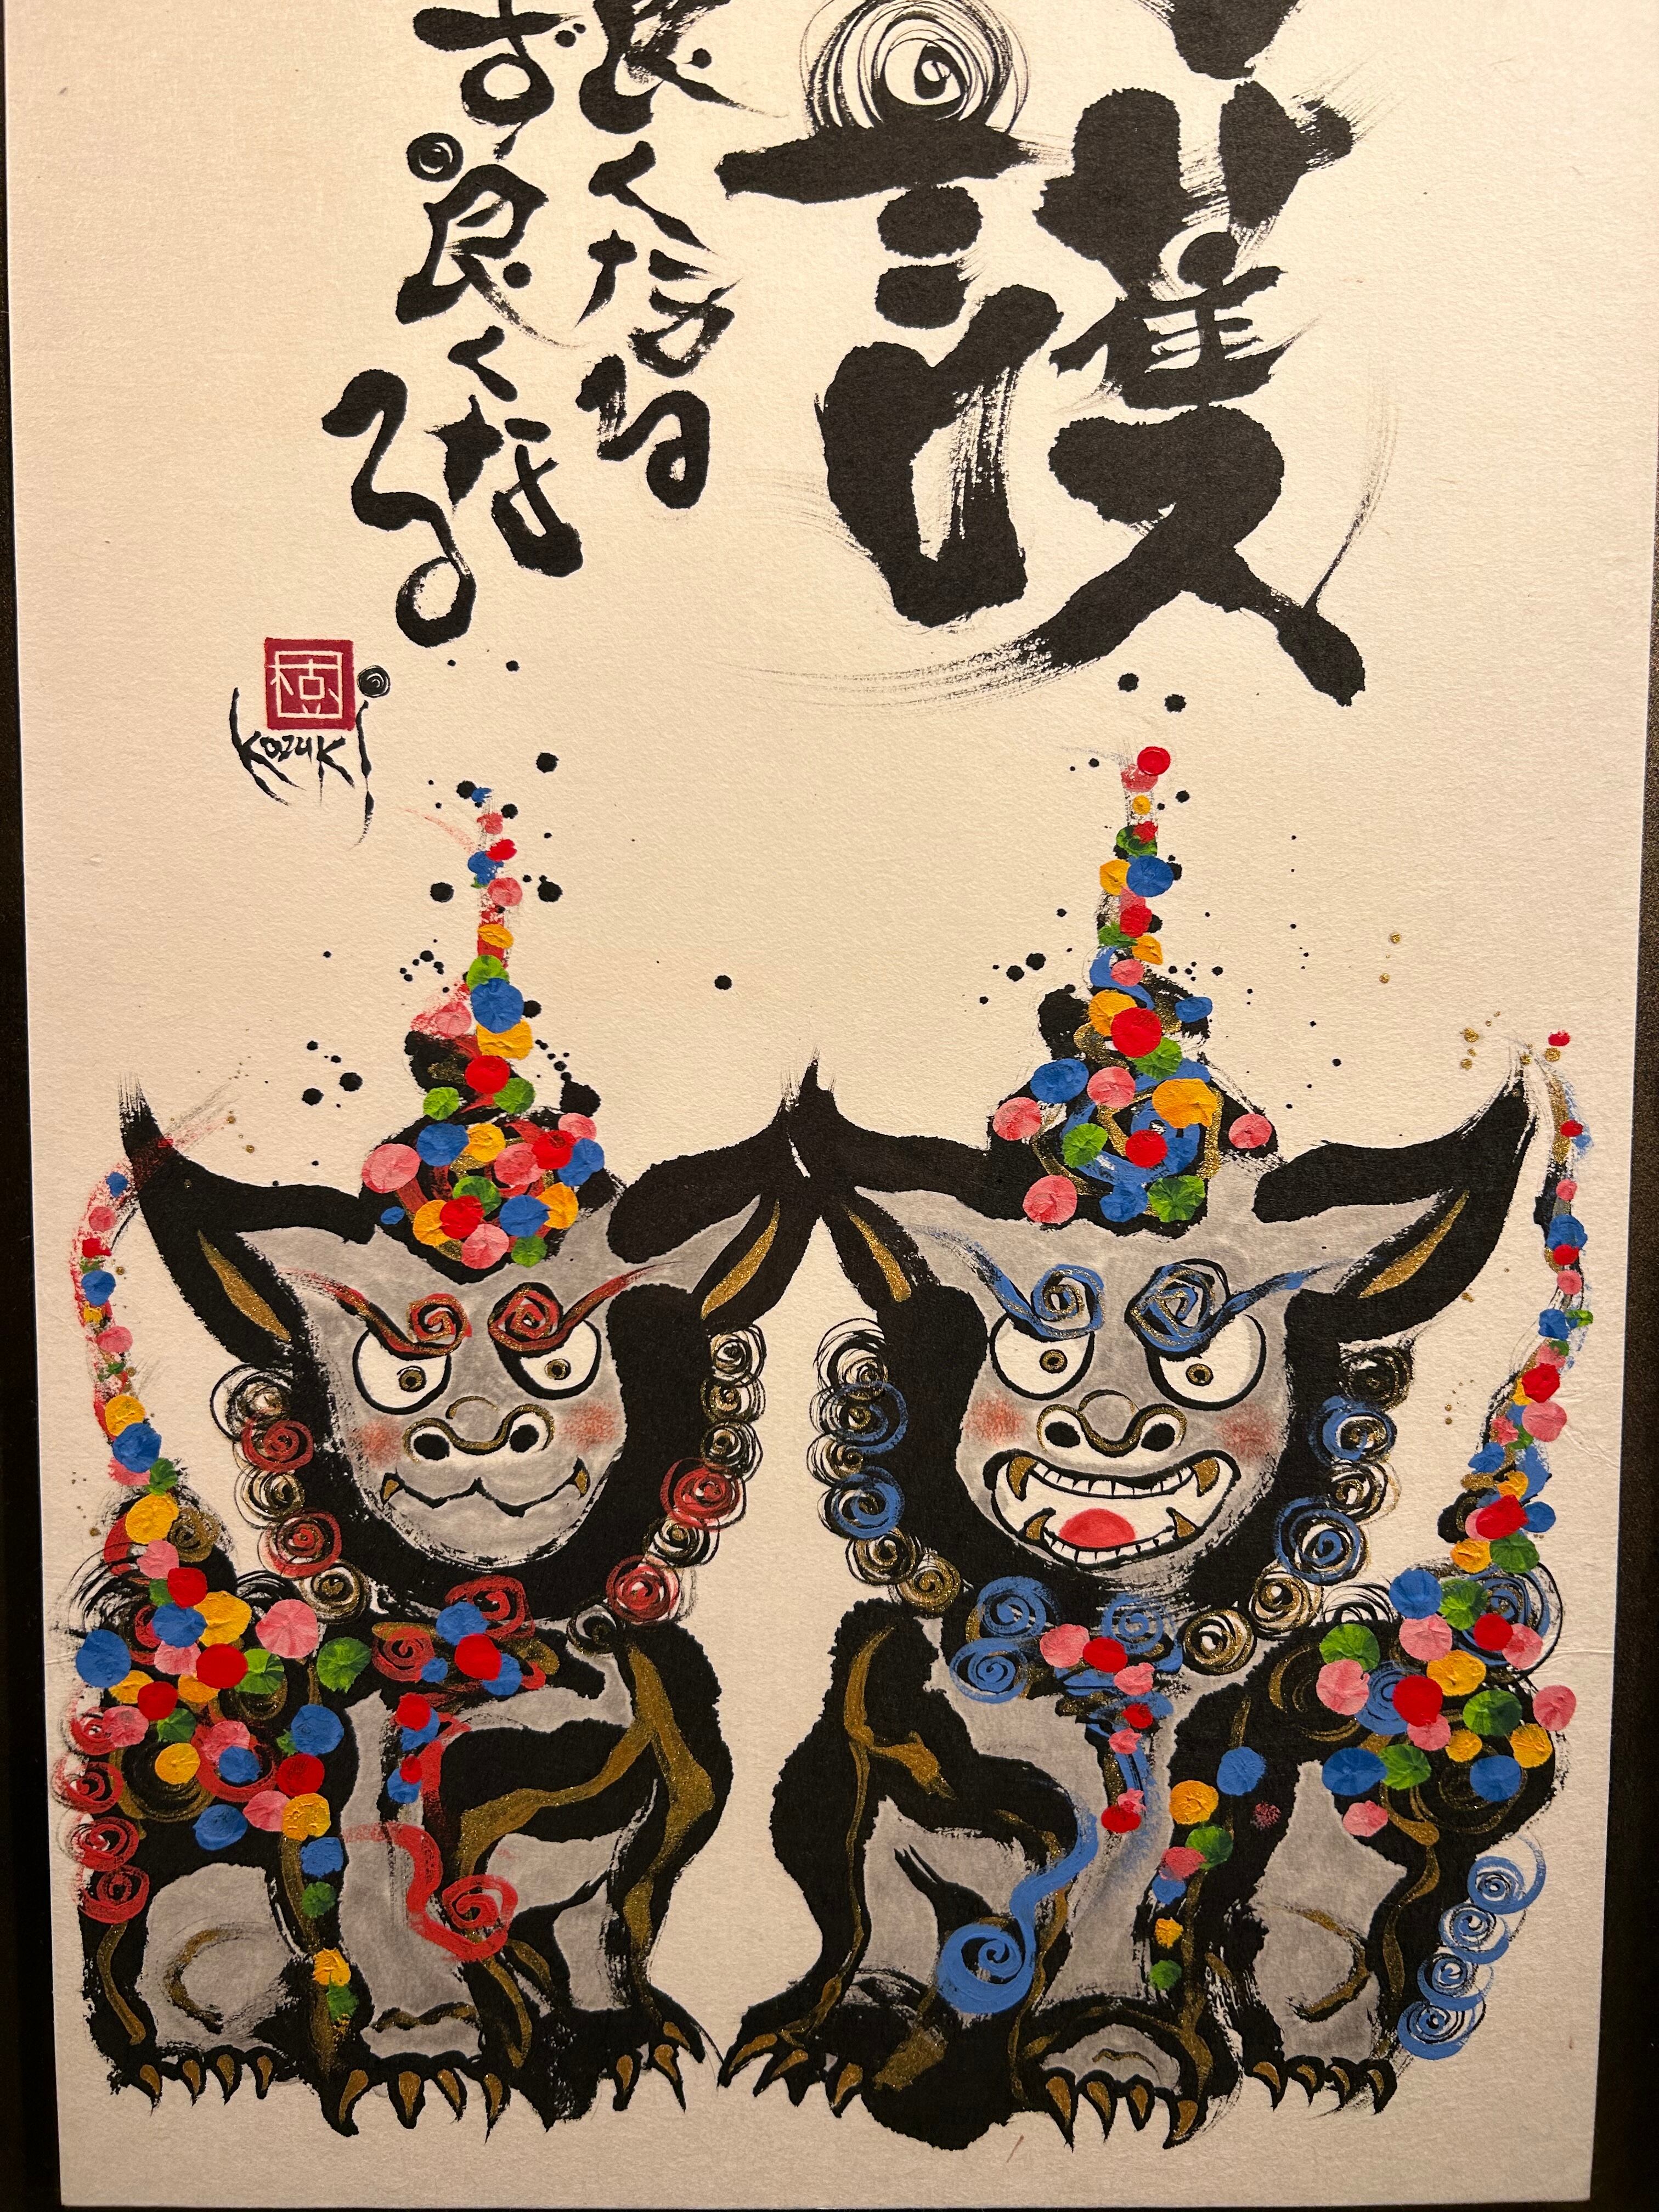 護
良くなる
ず良くなる
Kozuki